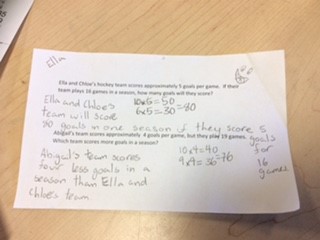 Ella
Ella and Chloe's hockey team scores approximately 5 goals per game. If their
team plays 16 games in a season, how many goals will they score?
Ella and Chloe's 10x5=50
team will score 6x5=30 =80
80 goals in one season if they score 5
goals
for
16
games
Abigail's team scores approximately 4 goals per game, but they play 19 games.
Which team scores more goals in a season?
Abigail's team scores 10x4=40
four less goals in a 9x4=36 =76
season than Ella and
Chloe's team